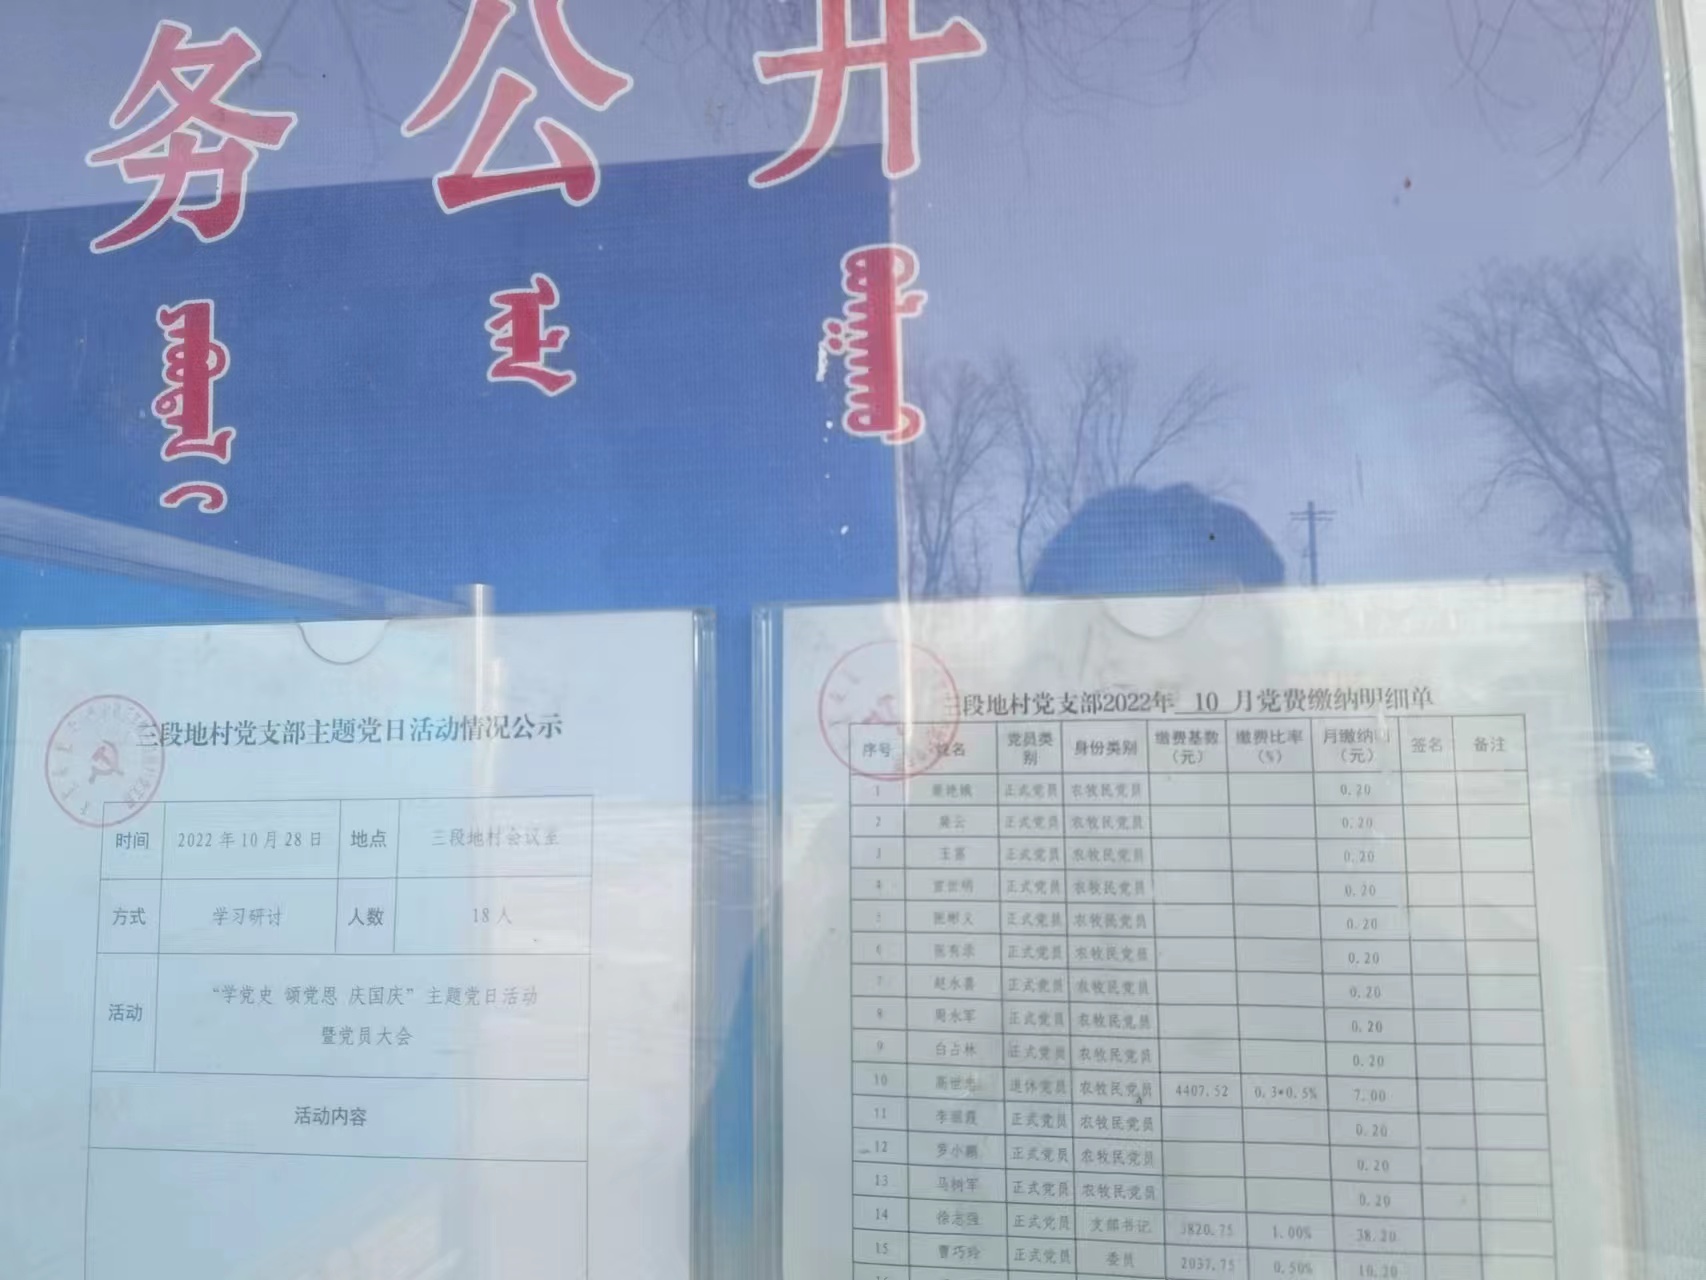 务公开
三段地村党支部主题党日活动情况公示
时间 2022年10月28日 地点 三段地村会议室
方式 学习研讨 人数 18人
活动 “学党史 颂党恩 庆国庆”主题党日活动
暨党员大会
活动内容
三段地村党支部2022年 10 月党费缴纳明细单
序号 姓名 党员类别 身份类别 缴费基数（元） 缴费比率（%） 月缴纳（元） 签名 备注
1 正式党员 农牧民党员 0.20
2 正式党员 农牧民党员 0.20
3 王富 正式党员 农牧民党员 0.20
4 正式党员 农牧民党员 0.20
5 张彬义 正式党员 农牧民党员 0.20
6 正式党员 农牧民党员 0.20
7 赵永喜 正式党员 农牧民党员 0.20
8 周永军 正式党员 农牧民党员 0.20
9 白占林 正式党员 农牧民党员 0.20
10 高世忠 退休党员 农牧民党员 4407.52 0.3*0.5% 7.00
11 李丽霞 正式党员 农牧民党员 0.20
12 罗小鹏 正式党员 农牧民党员 0.20
13 马树军 正式党员 农牧民党员 0.20
14 徐志强 正式党员 支部书记 3820.75 1.00% 38.20
15 曹巧玲 正式党员 委员 2037.75 0.50% 10.20